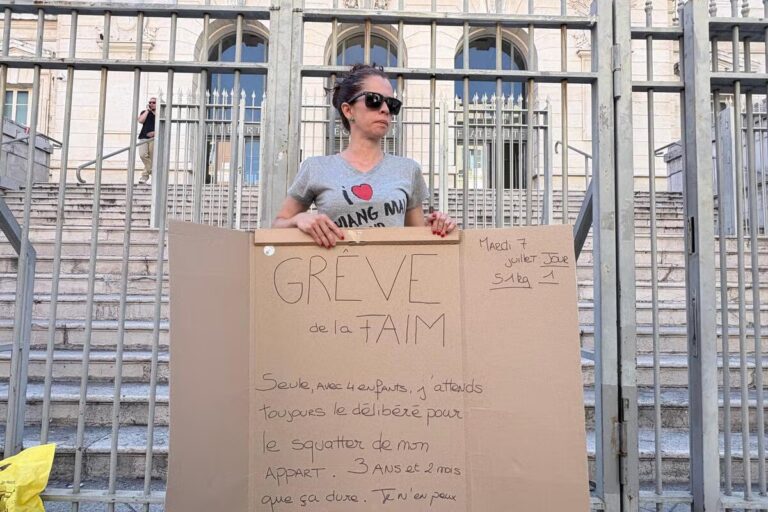 I ❤
HIANG MAI
Mardi 7
juillet JOUR
51kg 1
GRÊVE
de la FAIM
Seule, avec 4 enfants, j'attends
toujours le délibéré pour
le squatter de mon
APPART. 3 ANS et 2 mois
que ça dure. Je n'en peux